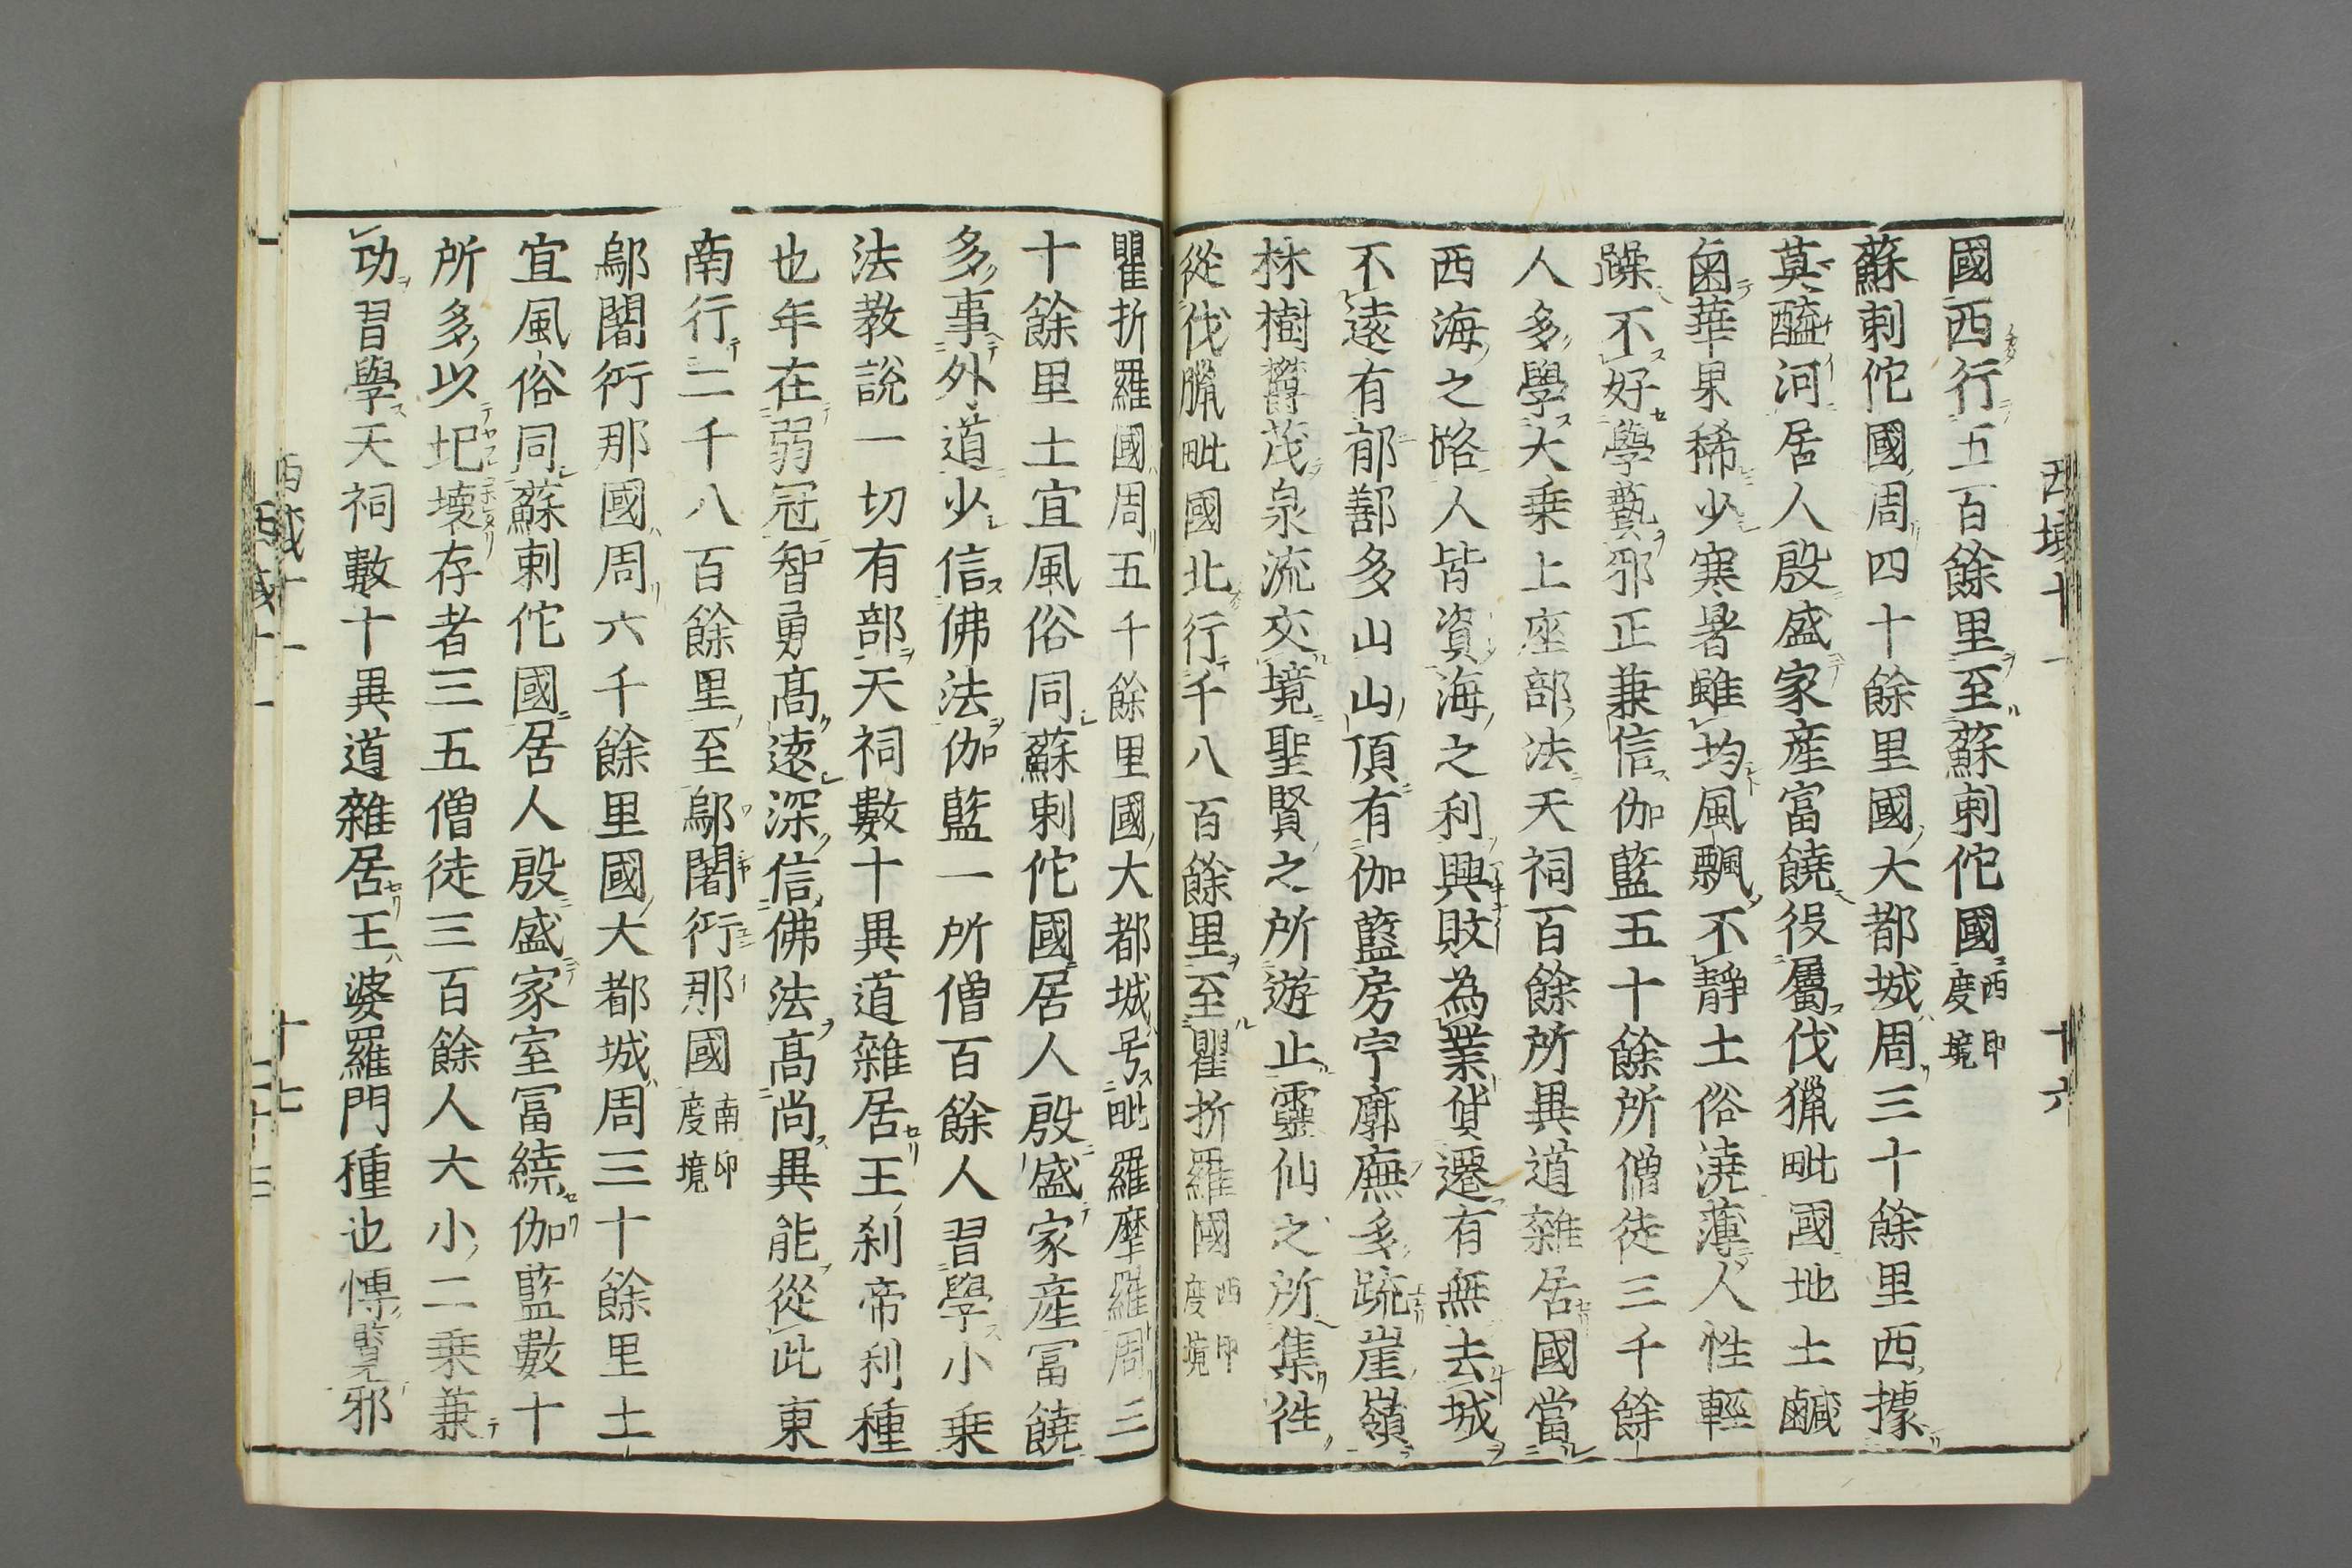 西域十一　十六
國西行五百餘里至蘇剌佗國西印度境
蘇剌佗國周四十餘里國大都城周三十餘里西據
莫醯河居人殷盛家産富饒役屬伐獵毗國地土鹹
鹵華果稀少寒暑雖均風飄不靜土俗澆薄人性輕
躁不好學藝邪正兼信伽藍五十餘所僧徒三千餘
人多學大乗上座部法天祠百餘所異道雜居國當
西海之路人皆資海之利興販為業貨遷有無去城
不遠有郁鄯多山山頂有伽藍房宇廓廡多疏崖嶺
林樹欝茂泉流交境聖賢之所遊止靈仙之所集徃
從伐臘毗國北行千八百餘里至瞿折羅國西印度境
瞿折羅國周五千餘里國大都城号毗羅摩羅周三
十餘里土宜風俗同蘇剌佗國居人殷盛家産冨饒
多事外道少信佛法伽藍一所僧百餘人習學小乗
法教説一切有部天祠數十異道雜居王刹帝利種
也年在弱冠智勇髙遠深信佛法髙尚異能從此東
南行二千八百餘里至鄔闍衍那國南印度境
鄔闍衍那國周六千餘里國大都城周三十餘里土
宜風俗同蘇剌佗國居人殷盛家室冨繞伽藍數十
所多以圮壞存者三五僧徒三百餘人大小二乗兼
功習學天祠數十異道雜居王婆羅門種也愽覽邪
西域十一　十七